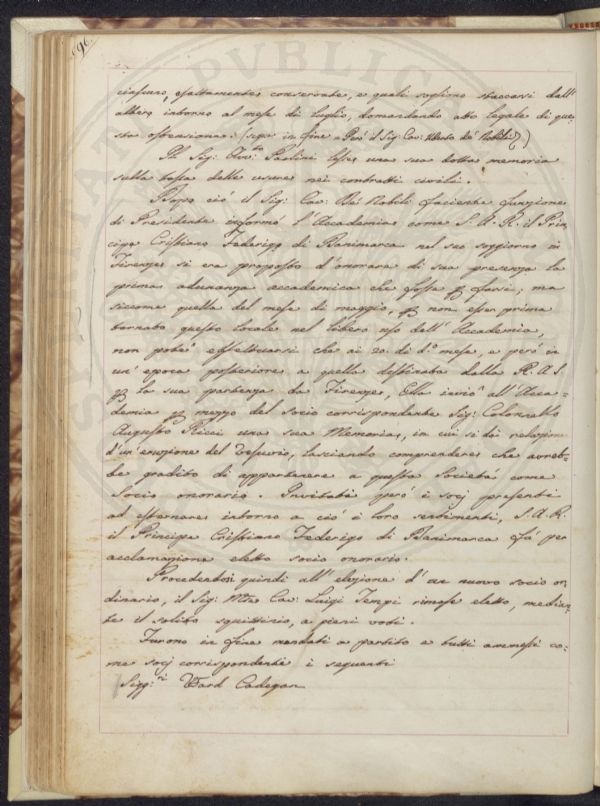 ciascuno, esattamente conservate, e quali sogliono staccarsi dall'
albero intorno al mese di luglio, domandando atto legale di que
sta ostensione: (segue in fine a Però il Sig: Cav: Uberto de' Nobili))
Il Sig: Avv:to Paolini lesse una sua dotta memoria
sulla tassa delle usure nei contratti civili.
Dopo ciò il Sig: Cav: De' Nobili facente funzione
di Presidente informò l'Accademia come S. A. R. il Prin
cipe Cristiano Federigo di Danimarca nel suo soggiorno in
Firenze si era proposto d'onorare di sua presenza la
prima adunanza accademica che fosse p farsi; ma
siccome quella del mese di maggio, p non esser prima
tornato questo locale nel libero uso dell'Accademia,
non potè effettuarsi che ai 20. di d:o mese, e però in
un'epoca posteriore a quella destinata dalla R. A. S.
p la sua partenza da Firenze, Ella inviò all'Acca=
demia p mezzo del socio corrispondente Sig: Colonnello
Augusto Ricci una sua Memoria, in cui si dà relazione
d'un'eruzione del Vesuvio, lasciando comprendere che avreb=
be gradito di appartenere a questa Società come
Socio onorario. Invitati però i socj presenti
ad esternare intorno a ciò i loro sentimenti, S. A. R.
il Principe Cristiano Federigo di Danimarca fù per
acclamazione eletto socio onorario.
Procedendosi quindi all'elezione d'un nuovo socio or
dinario, il Sig: Mse Cav: Luigi Tempi rimase eletto, median
te il solito squittinio, a pieni voti.
Furono in fine mandati a partito e tutti ammessi co=
me socj corrispondenti i seguenti
Sigg:ri Ward Cadogan